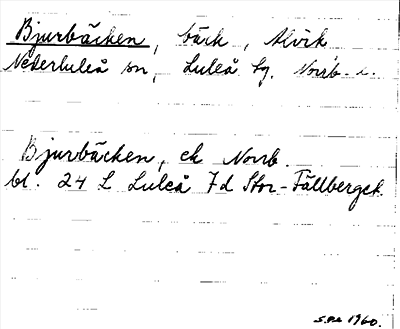 Bjurbäcken, bäck, Alvik
Nederluleå sn, Luleå tg. Norrb. l.
Bjurbäcken, ek Norrb.
bl. 24 L Luleå 7d Stor-Fällberget.
1960.